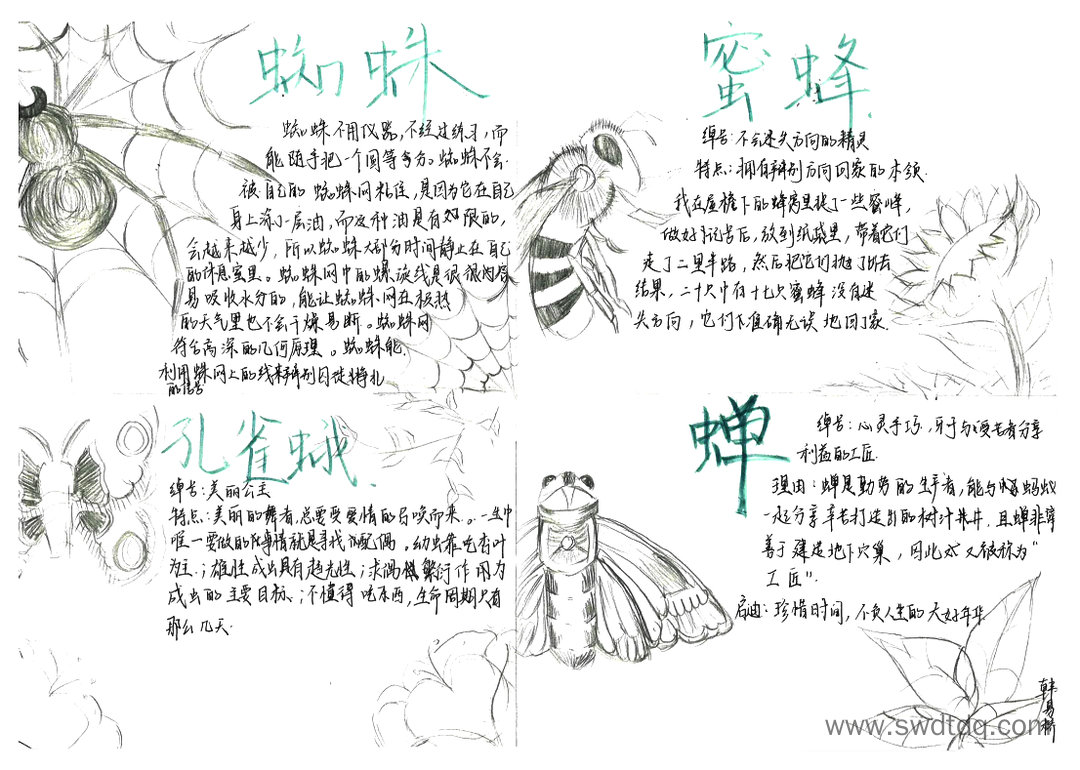 蜘蛛
蜘蛛不用仪器,不经过练习,而
能随手把一个圆等分。蜘蛛不会
被自己的蜘蛛网粘住,是因为它在自己
身上涂了一层油,而这种油是有限的,
会越来越少,所以蜘蛛大部分时间静止在自己
的休息室里。蜘蛛网中的螺旋线是很很容
易吸收水分的,能让蜘蛛网在极热
的天气里也不会干燥易断。蜘蛛网
符合高深的几何原理。蜘蛛能
利用蛛网上的线来辨别囚徒挣扎
的信号
蜜蜂
绰号:不会迷失方向的精灵
特点:拥有辨别方向回家的本领
我在屋檐下的蜂窝里找了一些蜜蜂,
做好记号后,放到纸袋里,带着它们
走了二里半路,然后把它们抛了出去
结果,二十只中有十七只蜜蜂没有迷
失方向,它们准确无误地回了家.
孔雀蛾
绰号:美丽公主
特点:美丽的舞者,总要受爱情的召唤而来。一生中
唯一要做的事情就是寻找配偶。幼虫靠吃杏叶
为主.;雄性成虫具有趋光性;求偶繁衍作用为
成虫的主要目标.;不懂得吃东西,生命周期只有
那么几天.
蝉
绰号:心灵手巧,乐于与受害者分享
利益的工匠.
理由:蝉是勤劳的生产者,能与蚂蚁
一起分享辛苦打造出的树汁井,且蝉非常
善于建造地下穴巢,因此又被称为"
工匠".
启迪:珍惜时间,不负人生的大好年华
韩易桥
www.swdtdq.com